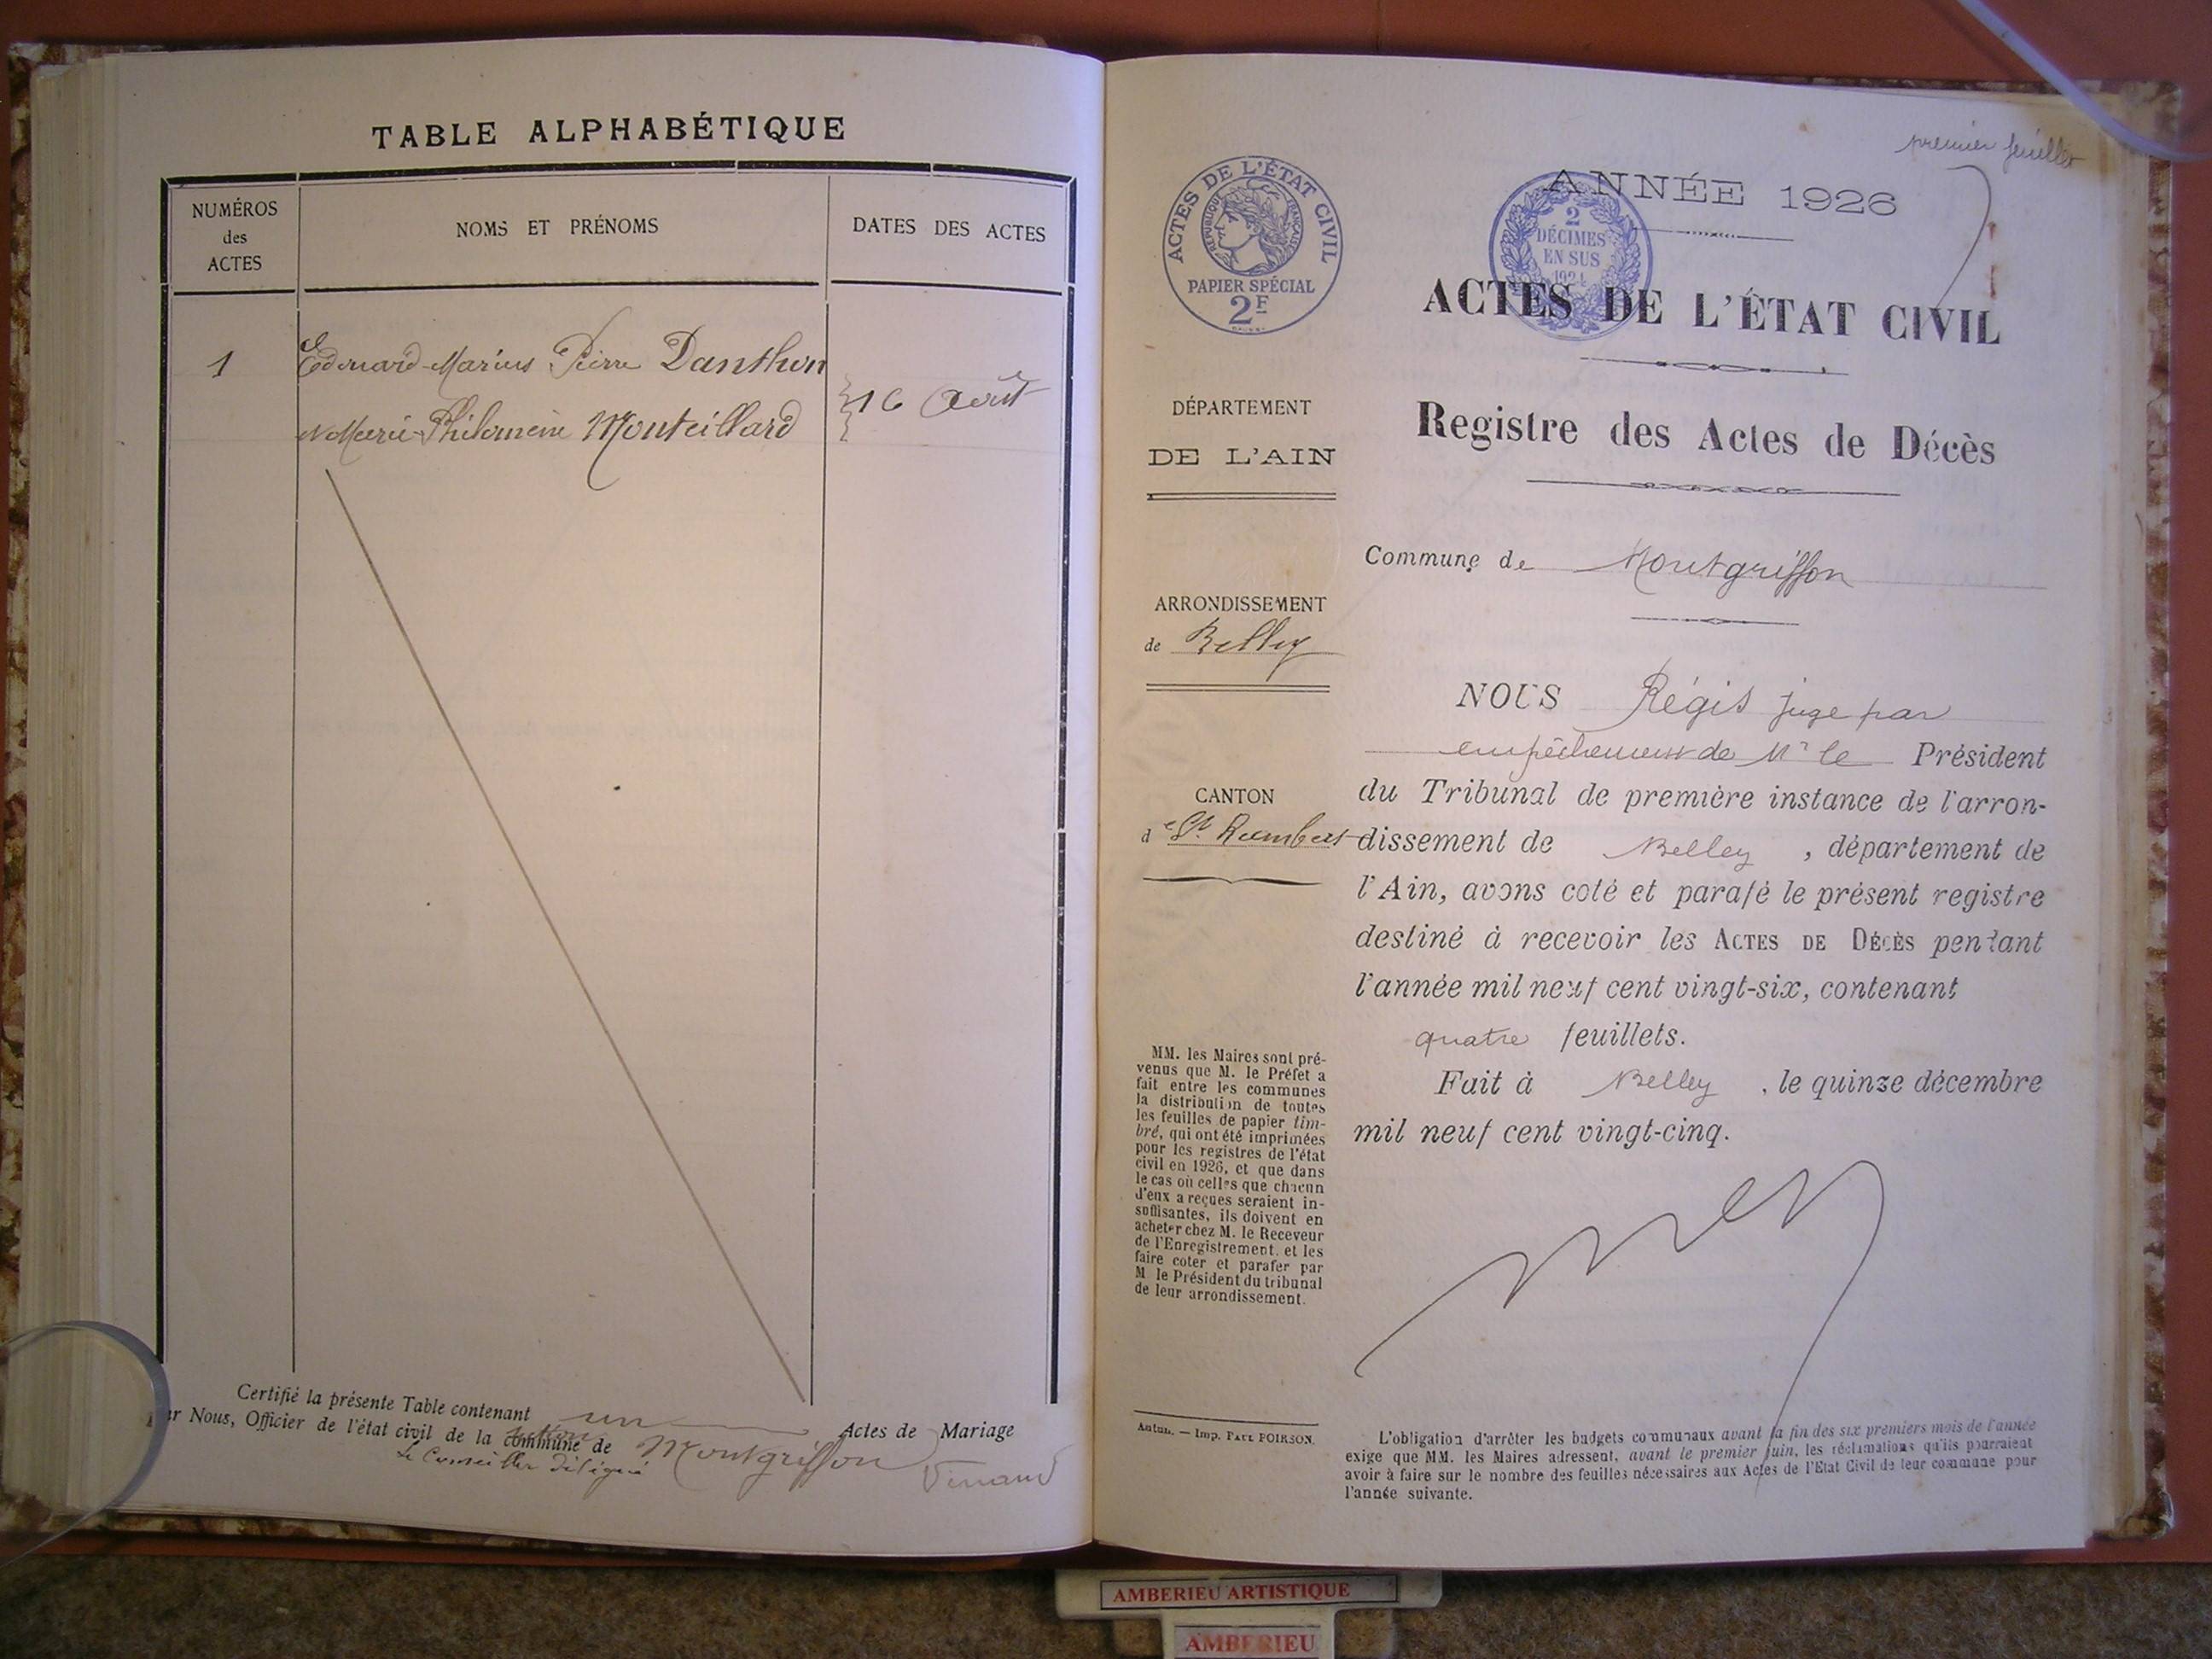 TABLE ALPHABÉTIQUE
NUMÉROS
des
ACTES
NOMS ET PRÉNOMS
DATES DES ACTES
1
Edouard-Marius Pierre Danthon
et Marie-Philomène Monteillard
16 Août
Certifié la présente Table contenant un Actes de Mariage
ar Nous, Officier de l'état civil de la commune de Montgriffon
Le Conseiller délégué
premier feuillet
ACTES DE L'ÉTAT CIVIL
RÉPUBLIQUE FRANÇAISE
PAPIER SPÉCIAL
2F
2
DÉCIMES
EN SUS
ANNÉE 1926
ACTES DE L'ÉTAT CIVIL
Registre des Actes de Décès
DÉPARTEMENT
DE L'AIN
ARRONDISSEMENT
de Belley
CANTON
de St Rambert
MM. les Maires sont pré-
venus que M. le Préfet a
fait entre les communes
la distribution de toutes
les feuilles de papier tim-
bré, qui ont été imprimées
pour les registres de l'état
civil en 1926, et que dans
le cas où celles que chacun
d'eux a reçues seraient in-
suffisantes, ils doivent en
acheter chez M. le Receveur
de l'Enregistrement. et les
faire coter et parafer par
M le Président du tribunal
de leur arrondissement.
Autun. — Imp. PAUL POIRSON.
Commune de Montgriffon
NOUS Régis juge par
empêchement de Mr le Président
du Tribunal de première instance de l'arron-
dissement de Belley, département de
l'Ain, avons coté et parafé le présent registre
destiné à recevoir les ACTES DE DÉCÈS pendant
l'année mil neuf cent vingt-six, contenant
quatre feuillets.
Fait à Belley, le quinze décembre
mil neuf cent vingt-cinq.
L'obligation d'arrêter les budgets communaux avant la fin des six premiers mois de l'année
exige que MM. les Maires adressent, avant le premier juin, les réclamations qu'ils pourraient
avoir à faire sur le nombre des feuilles nécessaires aux Actes de l'Etat Civil de leur commune pour
l'année suivante.
AMBERIEU ARTISTIQUE
AMBERIEU